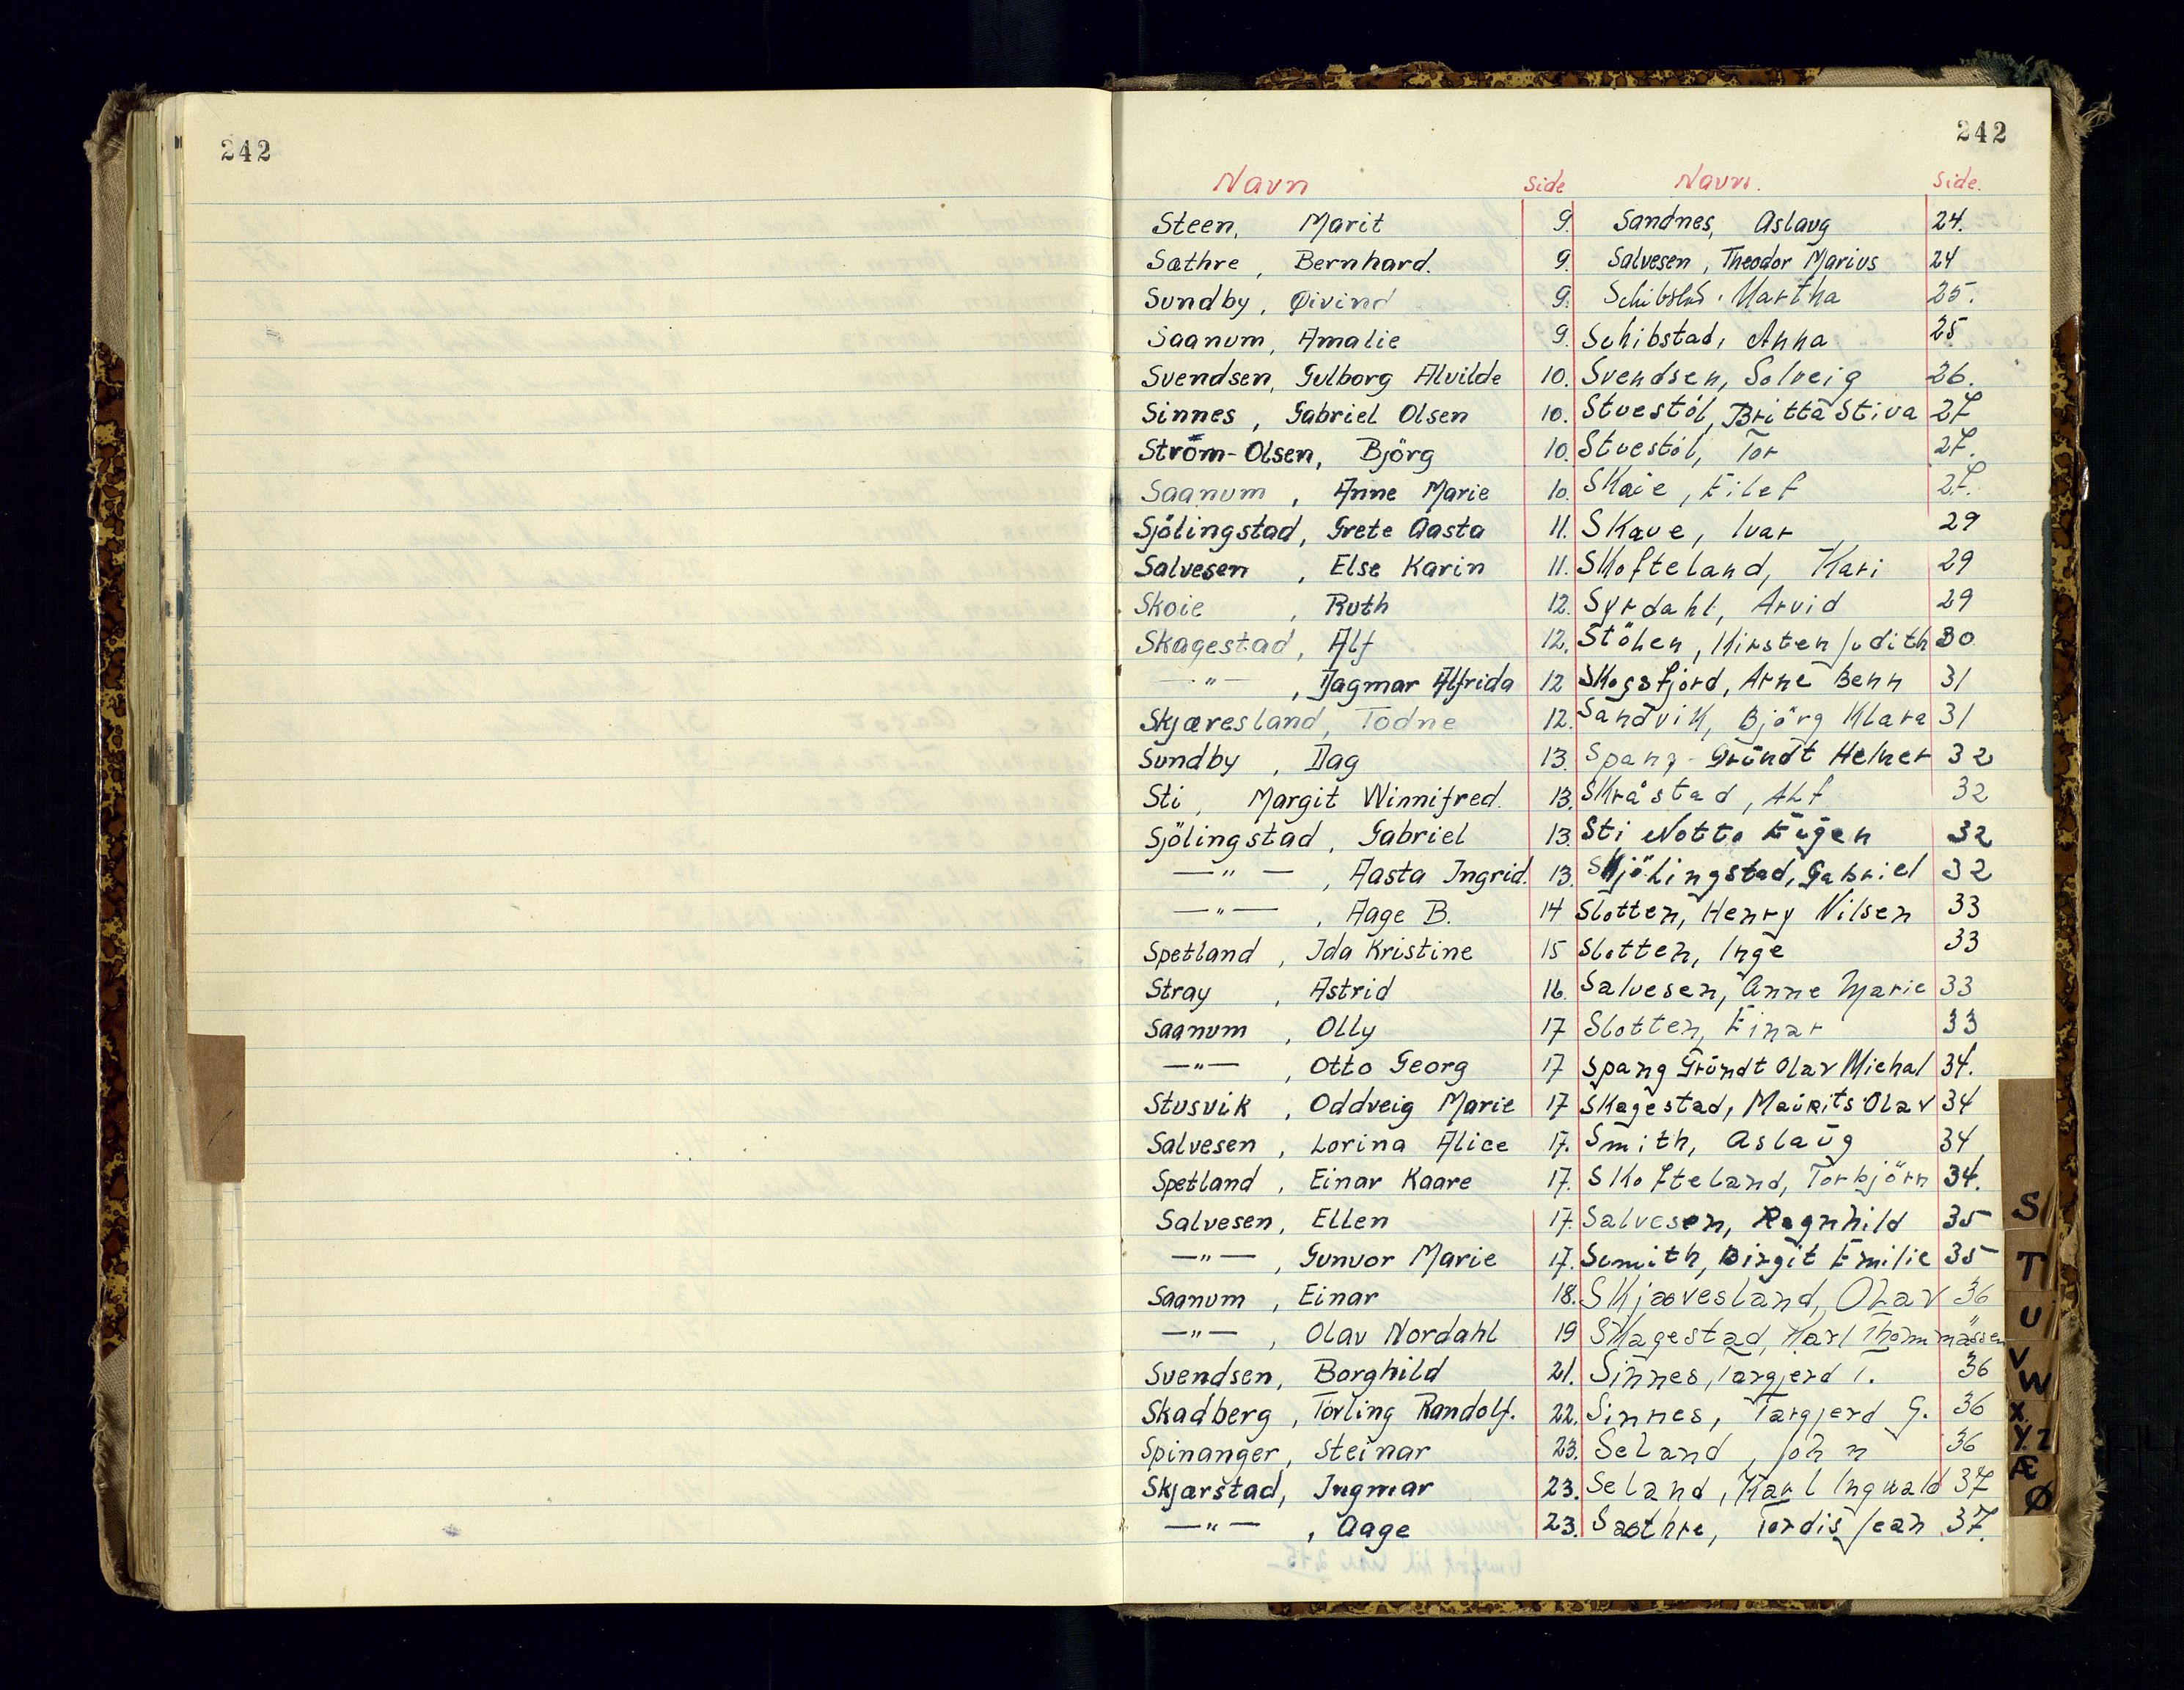 242
242
Navn Side Navn. Side.
Steen, Marit 9. Sandnes, Aslaug 24.
Sæthre, Bernhard. 9. Salvesen, Theodor Marius 24
Sundby, Øivind 9. Schibstad, Martha 25.
Saanum, Amalie 9. Schibstad, Anna 25
Svendsen, Gulborg Alvilde 10. Svendsen, Solveig 26.
Sinnes, Gabriel Olsen 10. Stuestöl, Britta Stiva 27
Ström-Olsen, Björg 10. Stuestöl, Tor 27.
Saanum, Anne Marie 10. Skaie, Eilef 27.
Sjölingstad, Grete Aasta 11. Skaue, Ivar 29
Salvesen, Else Karin 11. Skofteland, Kari 29
Skoie, Ruth 12. Syrdahl, Arvid 29
Skagestad, Alf 12. Stölen, Kirsten Judith 30
—"—, Dagmar Alfrida 12 Skogsfjord, Arne Benn 31
Skjæresland, Todne 12. Sandvik, Björg Klara 31
Sundby, Dag 13. Spang-Gründt Helner 32
Sti, Margit Winnifred. 13. Skråstad, Alf 32
Sjölingstad, Gabriel 13. Sti Notto Eigen 32
—"—, Aasta Ingrid. 13. Skjölingstad, Gabriel 32
—"—, Aage B. 14 Slotten, Henry Nilsen 33
Spetland, Ida Kristine 15 Slotten, Inge 33
Stray, Astrid 16. Salvesen, Anne Marie 33
Saanum, Olly 17 Slotten, Einar 33
—"—, Otto Georg 17 Spang Gründt Olav Michal 34.
Stusvik, Oddveig Marie 17 Skagestad, Maurits Olav 34
Salvesen, Lorina Alice 17. Smith, Aslaug 34
Spetland, Einar Kaare 17. Skofteland, Torbjörn 34.
Salvesen, Ellen 17. Salvesen, Ragnhild 35
—"—, Gunvor Marie 17. Smith, Birgit Emilie 35
Saanum, Einar 18. Skjævesland, Olav 36
—"—, Olav Nordahl 19 Skagestad, Karl Thommassen "
Svendsen, Borghild 21. Sinnes, Targjerd T. 36
Skadberg, Torling Randolf. 22. Sinnes, Targjerd G. 36
Spinanger, Steinar 23. Seland, John 36
Skjærstad, Ingmar 23. Seland, Karl Ingwald 37
—"—, Aage 23. Sæthre, Tordis Jean 37.
S
T
U
V
W
X
Y Z
Æ
Ø